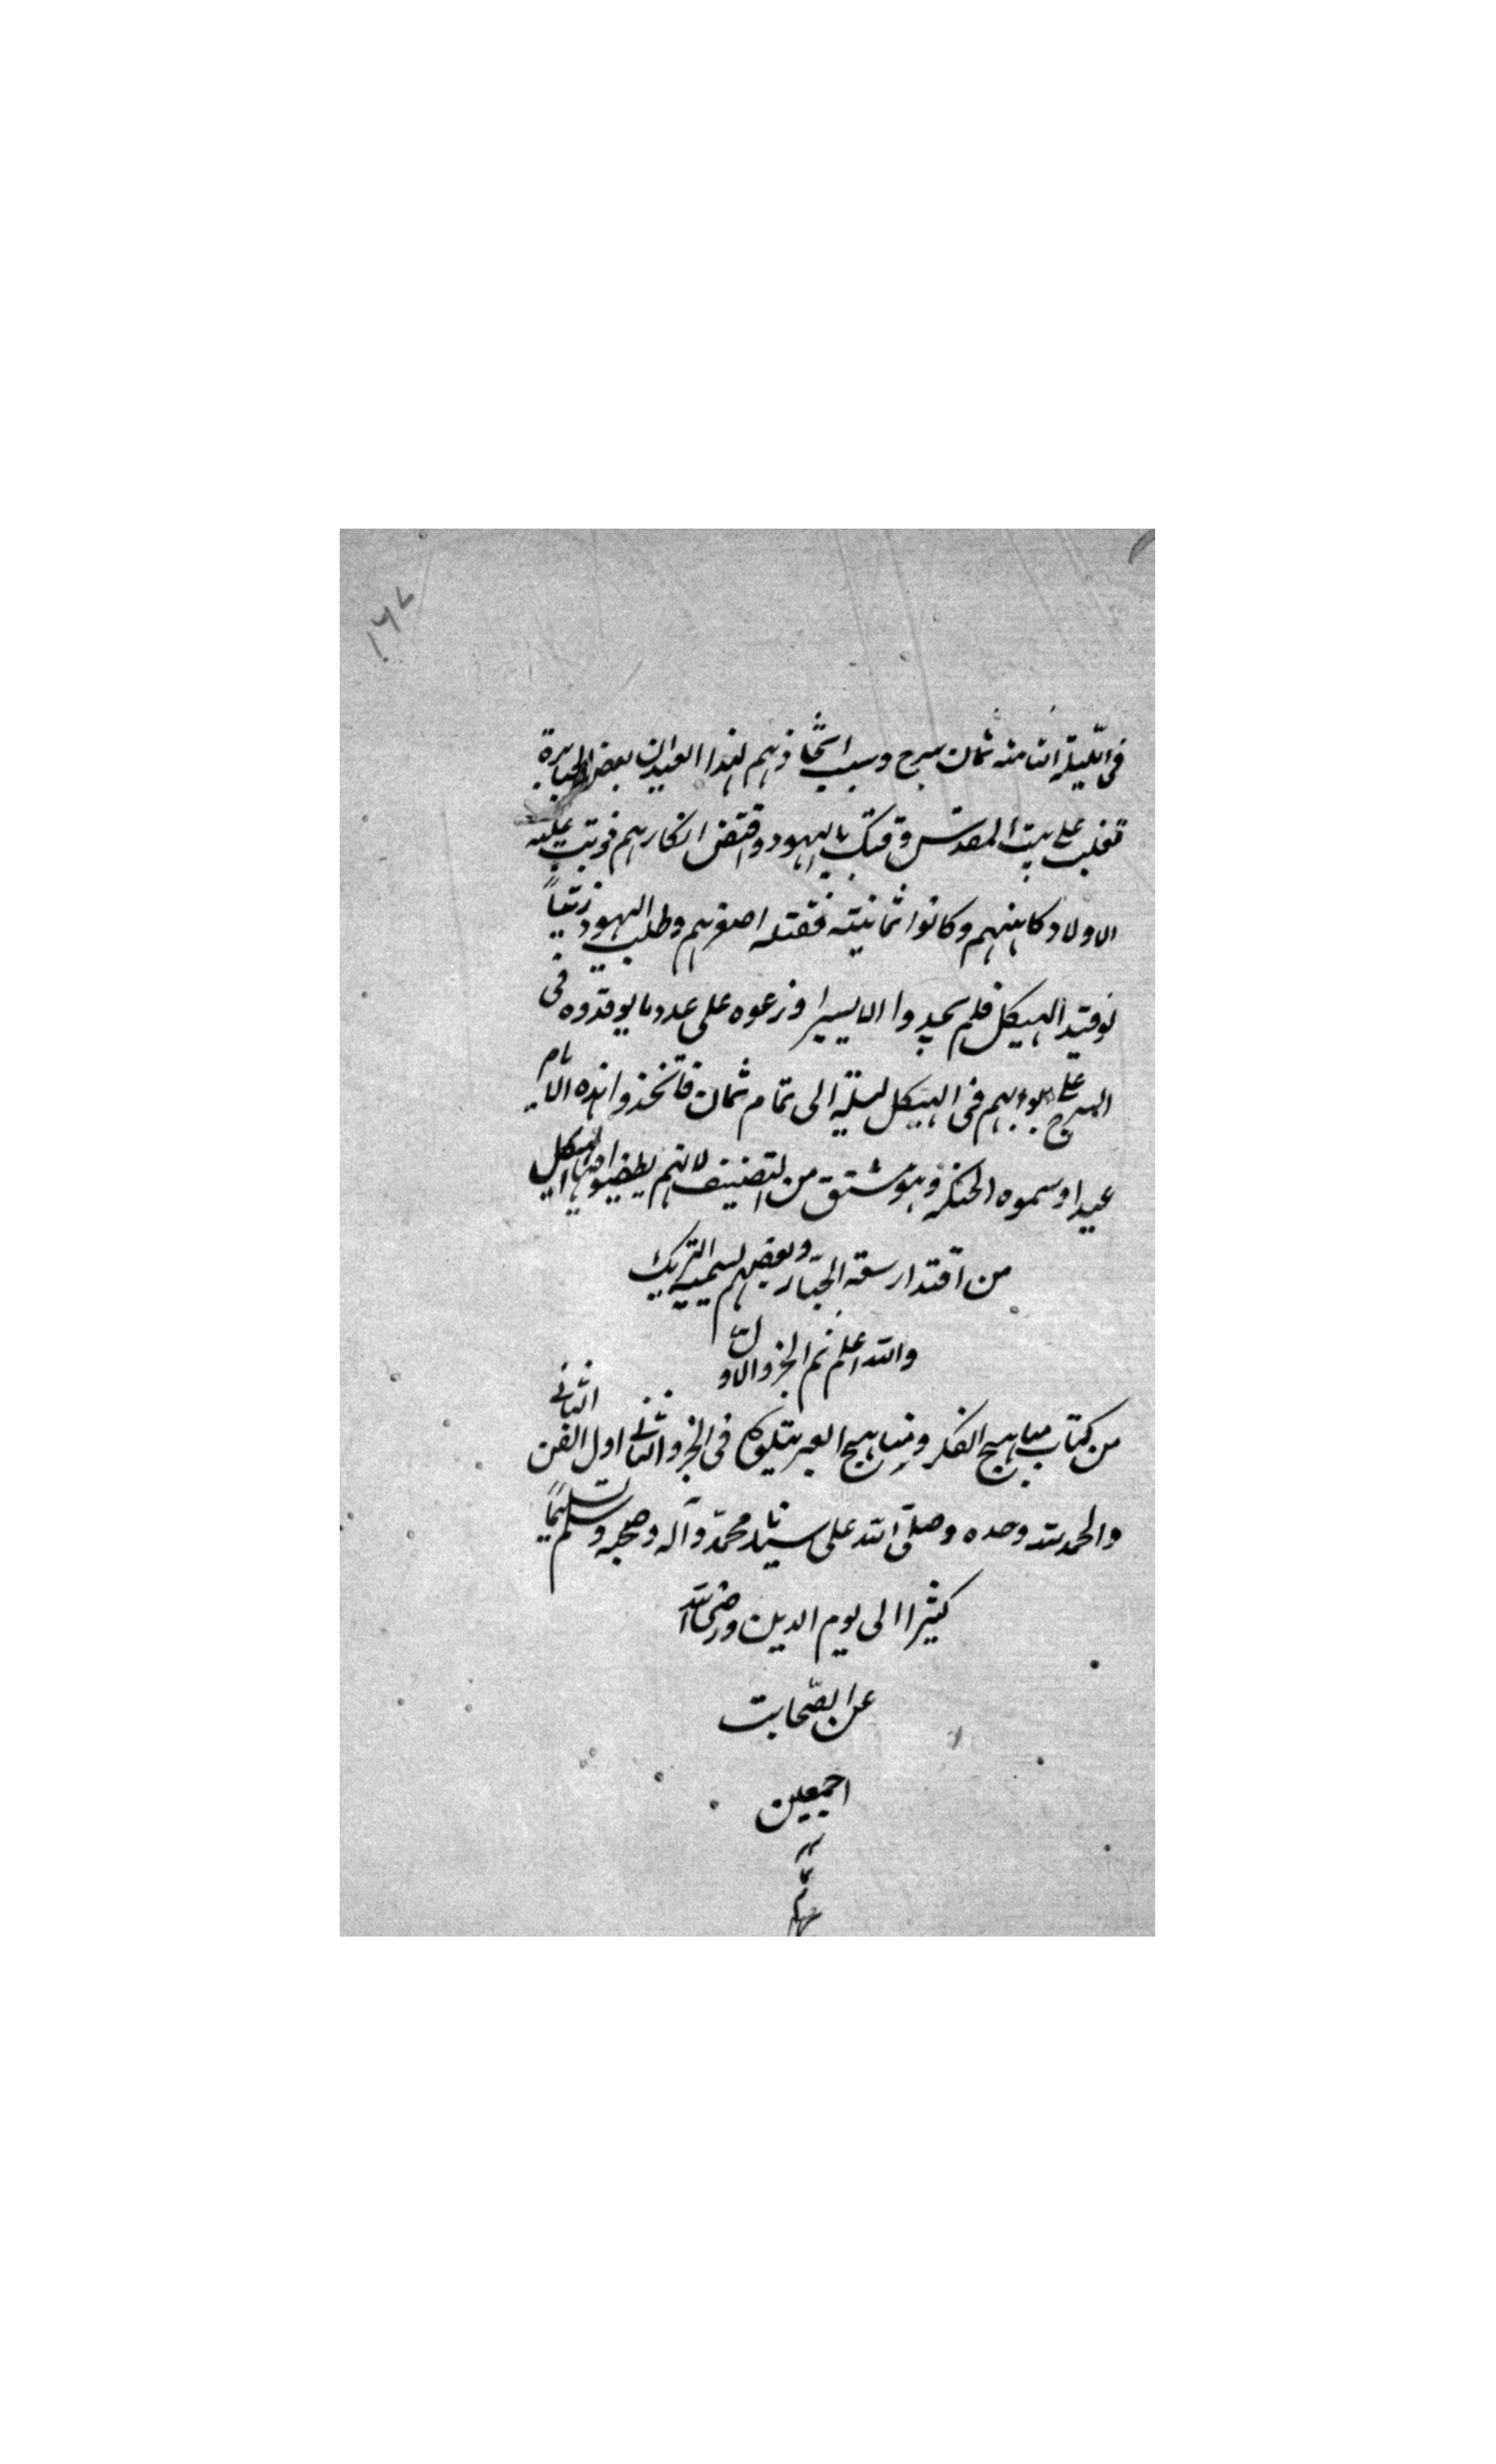 ١٦٧
فى الليلة الثامنه ثمان سرج وسبب اتخاذهم لهذا العيد ان بعض الجبابرة
تغلب على بيت المقدس وفتك باليهود واقتض ابكارهم فوثب عليه
الاولاد كاهنهم وكانوا ثمانيته فقتله اصغرهم وطلب اليهود زيتاً
لوقيد الهيكل فلم يجدوا الا يسيرا وزعوه على عدد ما يوقدوه فى
السرج على ابوابهم فى الهيكل ليلة الى تمام ثمان فاتخذوا هذه الايام
عيدا وسموه الحنكه وهو مشتق من التنضيف لانهم ينضفوا فيها الهيكل
من اقذار سقه الجبّار وبعضهم يسميه التبريك
والله اعلم تم الجزو الاوّل
من كتاب مباهج الفكر ومناهج العبر يتلوه فى الجزو الثانى اول الفن الثانى
والحمد لله وحده وصلّى الله على سيّدنا محمّد وآله وصحبه وسلم تسليمًا
كثيرا الى يوم الدين ورضى الله
عن الصّحابت
اجمعين